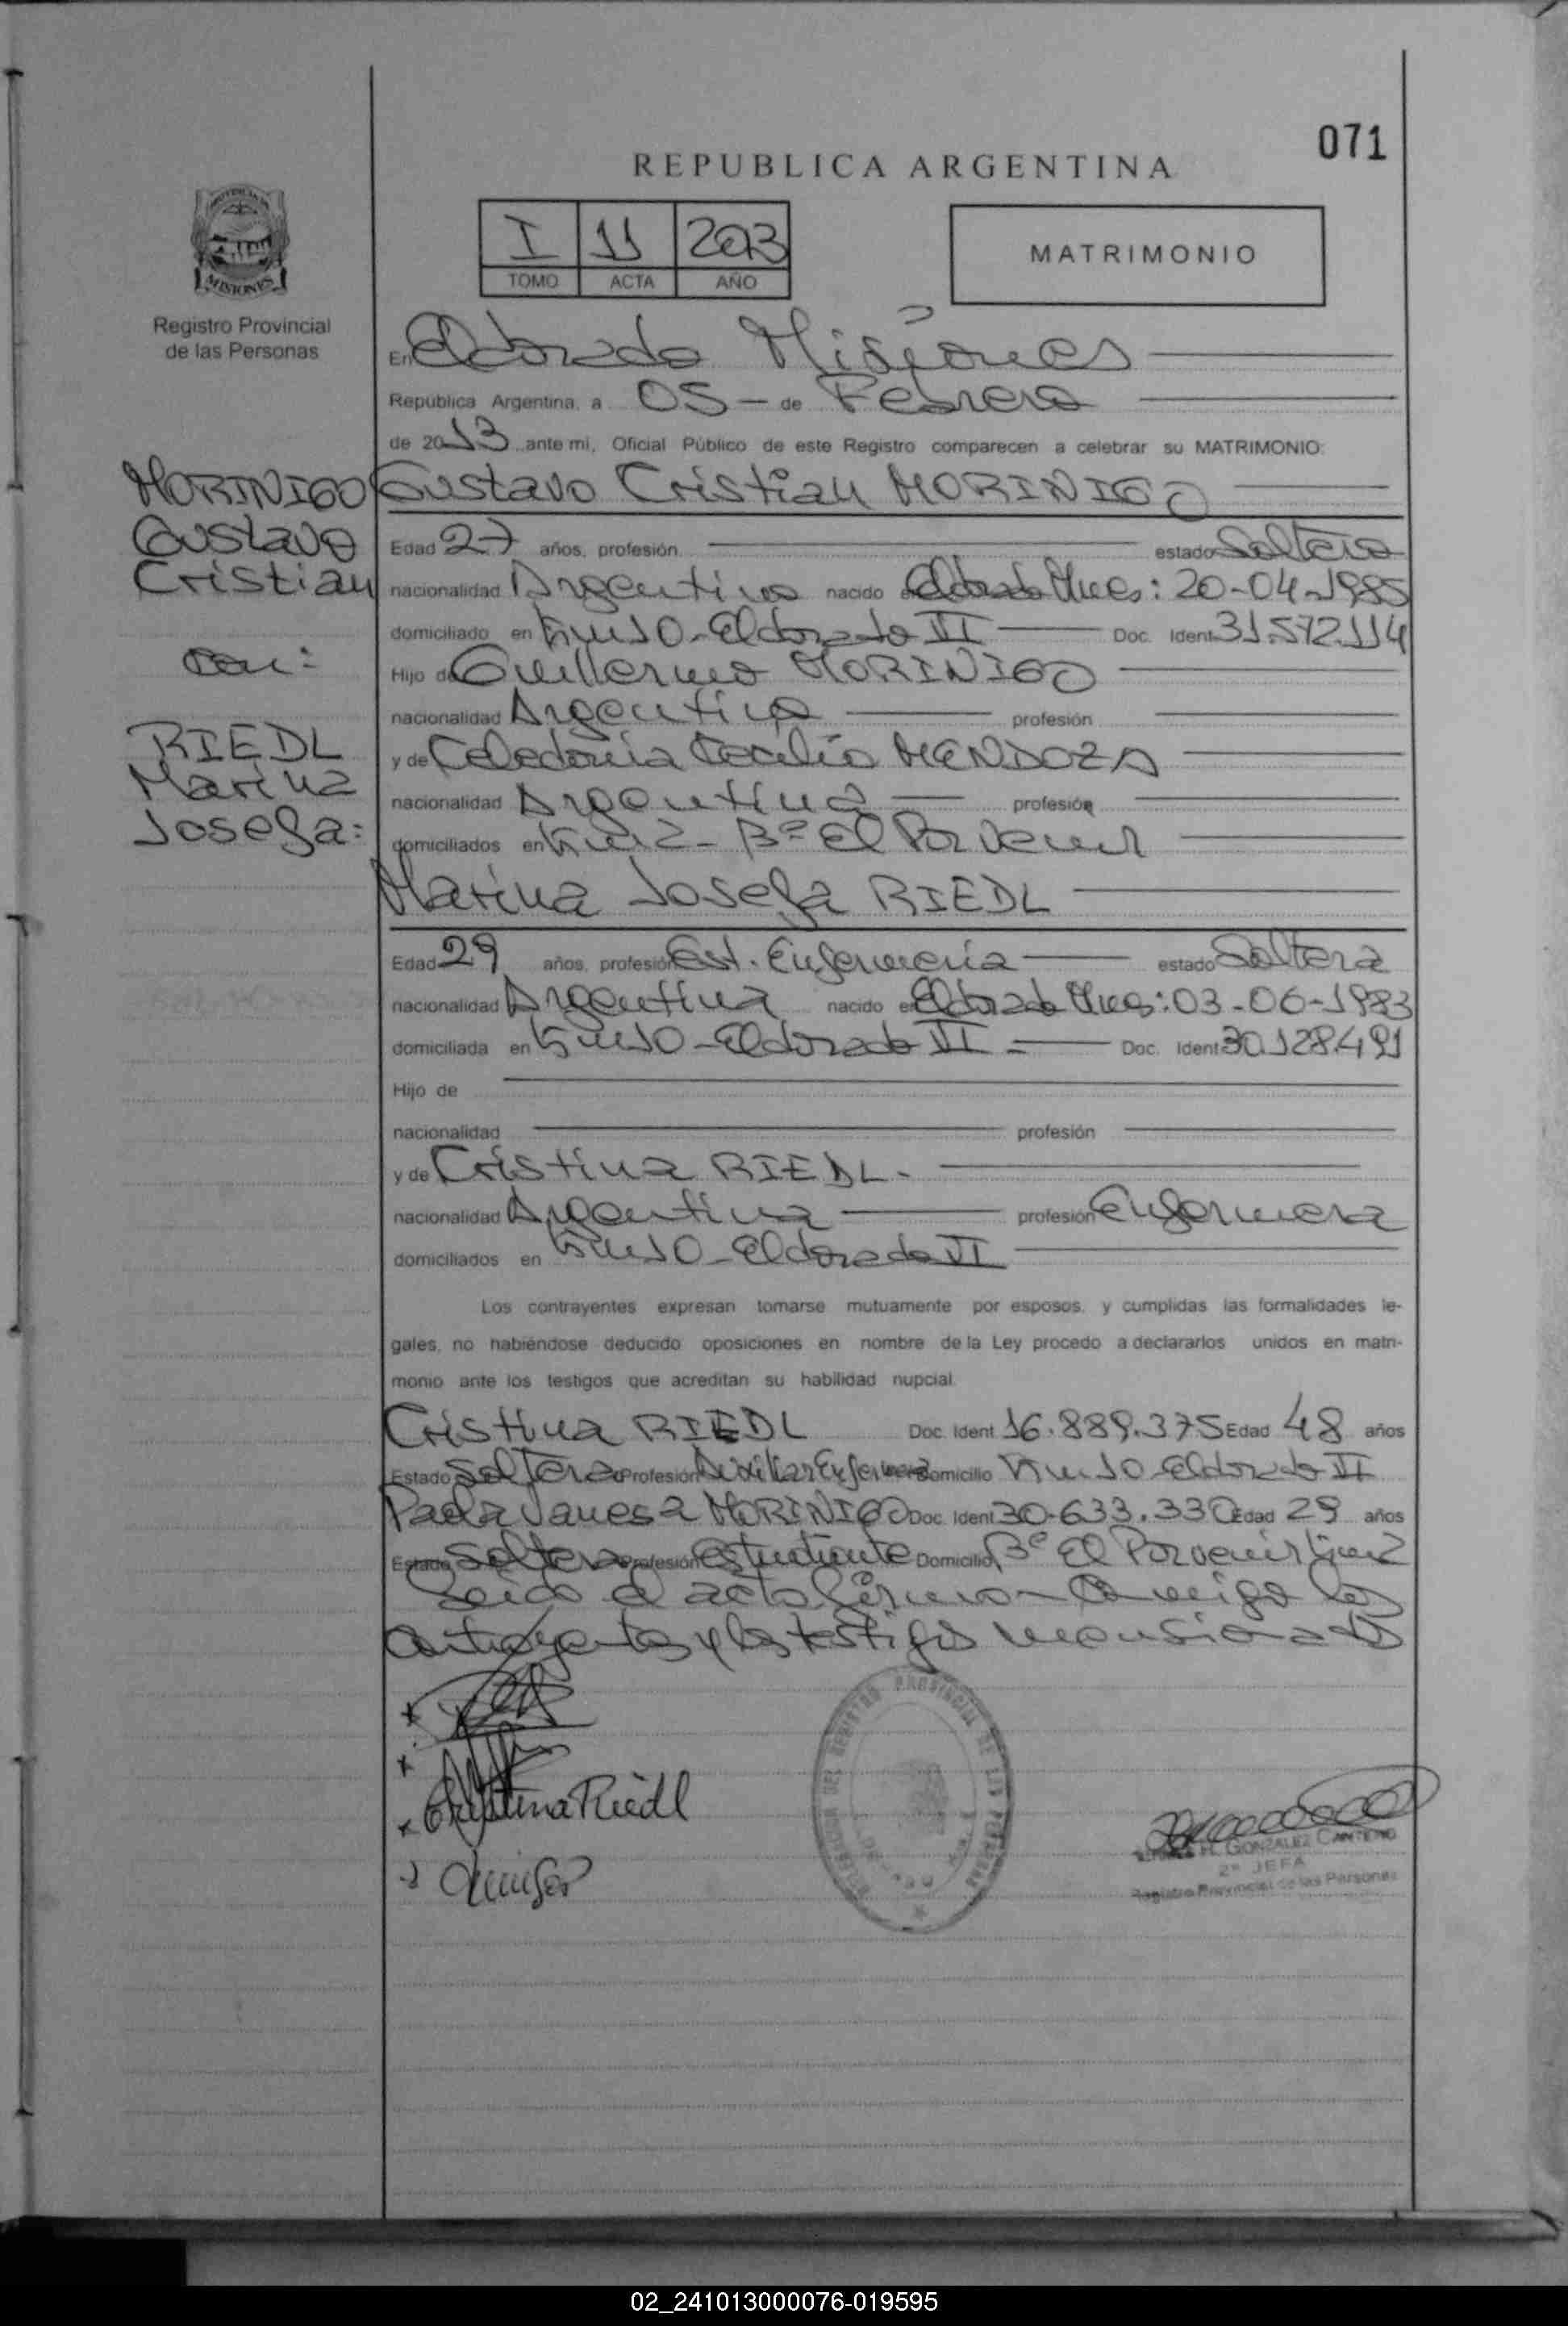 071
REPUBLICA ARGENTINA
I 11 2013
TOMO ACTA AÑO
MATRIMONIO
MISIONES
Registro Provincial
de las Personas
En Eldorado Misiones
República Argentina, a 05 - de Febrero
de 2013 ante mi, Oficial Público de este Registro comparecen a celebrar su MATRIMONIO:
MORINIGO
Gustavo
Cristian
con:
RIEDL
Marina
Josefa:
Gustavo Cristian MORINIGO
Edad 27 años, profesión estado Soltero
nacionalidad Argentino nacido en Eldorado Mnes: 20-04-1985
domiciliado en Km 10 - Eldorado VI Doc. Ident 31.572.114
Hijo de Guillermo MORINIGO
nacionalidad Argentino profesión
y de Celedonia Cecilia MENDOZA
nacionalidad Argentina profesión
domiciliados en Km 2 - Bº El Porvenir
Marina Josefa RIEDL
Edad 29 años, profesión Est. Enfermería estado Soltera
nacionalidad Argentina nacido en Eldorado Mnes: 03-06-1983
domiciliada en Km 10 - Eldorado VI - Doc. Ident 30.128.491
Hijo de
nacionalidad profesión
y de Cristina RIEDL -
nacionalidad Argentina profesión Enfermera
domiciliados en Km 10 - Eldorado VI
Los contrayentes expresan tomarse mutuamente por esposos, y cumplidas las formalidades le-
gales, no habiéndose deducido oposiciones en nombre de la Ley procedo a declararlos unidos en matri-
monio ante los testigos que acreditan su habilidad nupcial.
Cristina RIEDL Doc. Ident 16.889.375 Edad 48 años
Estado Soltera Profesión Auxiliar Enfermera Domicilio Km 10 - Eldorado VI
Paola Vanesa MORINIGO Doc. Ident 30.633.330 Edad 29 años
Estado Soltera Profesión Estudiante Domicilio Bº El Porvenir Km 2
Leido el acto firman conmigo los
contrayentes y los testigos mencionados
Cristina Riedl
DELEGACION DEL REGISTRO PROVINCIAL DE LAS PERSONAS
H. GONZALEZ CANTERO
2º JEFA
Registro Provincial de las Personas
02_241013000076-019595